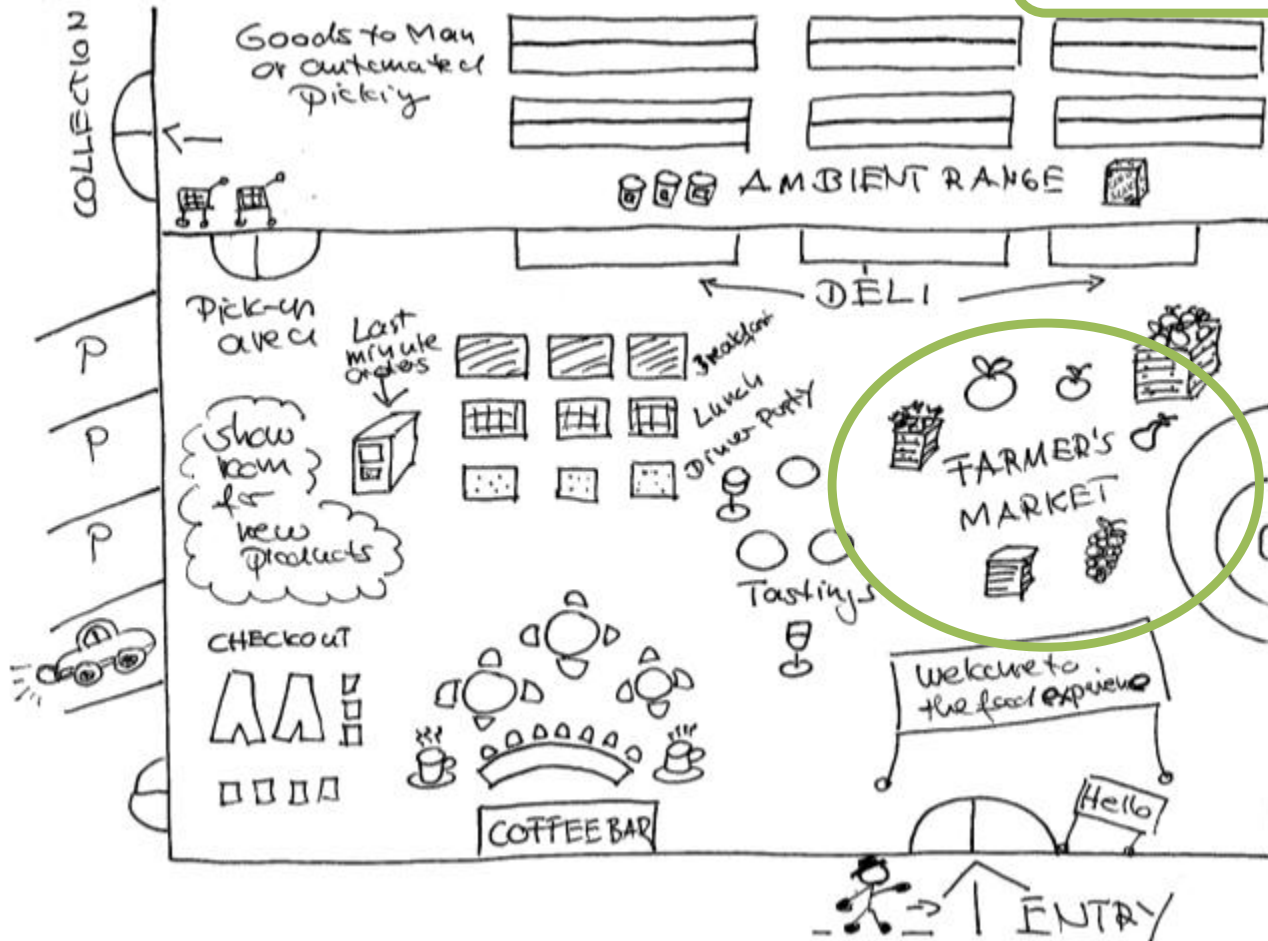 COLLECTION
Goods to Man
or automated
Picking
AMBIENT RANGE
DELI
Pick-up
area
Last
minute
orders
Breakfast
Lunch
Dinner Party
show
room
for
new
products
P
P
P
FARMER'S
MARKET
Tastings
CHECKOUT
Welcome to
the food experience
Hello
COFFEE BAR
ENTRY